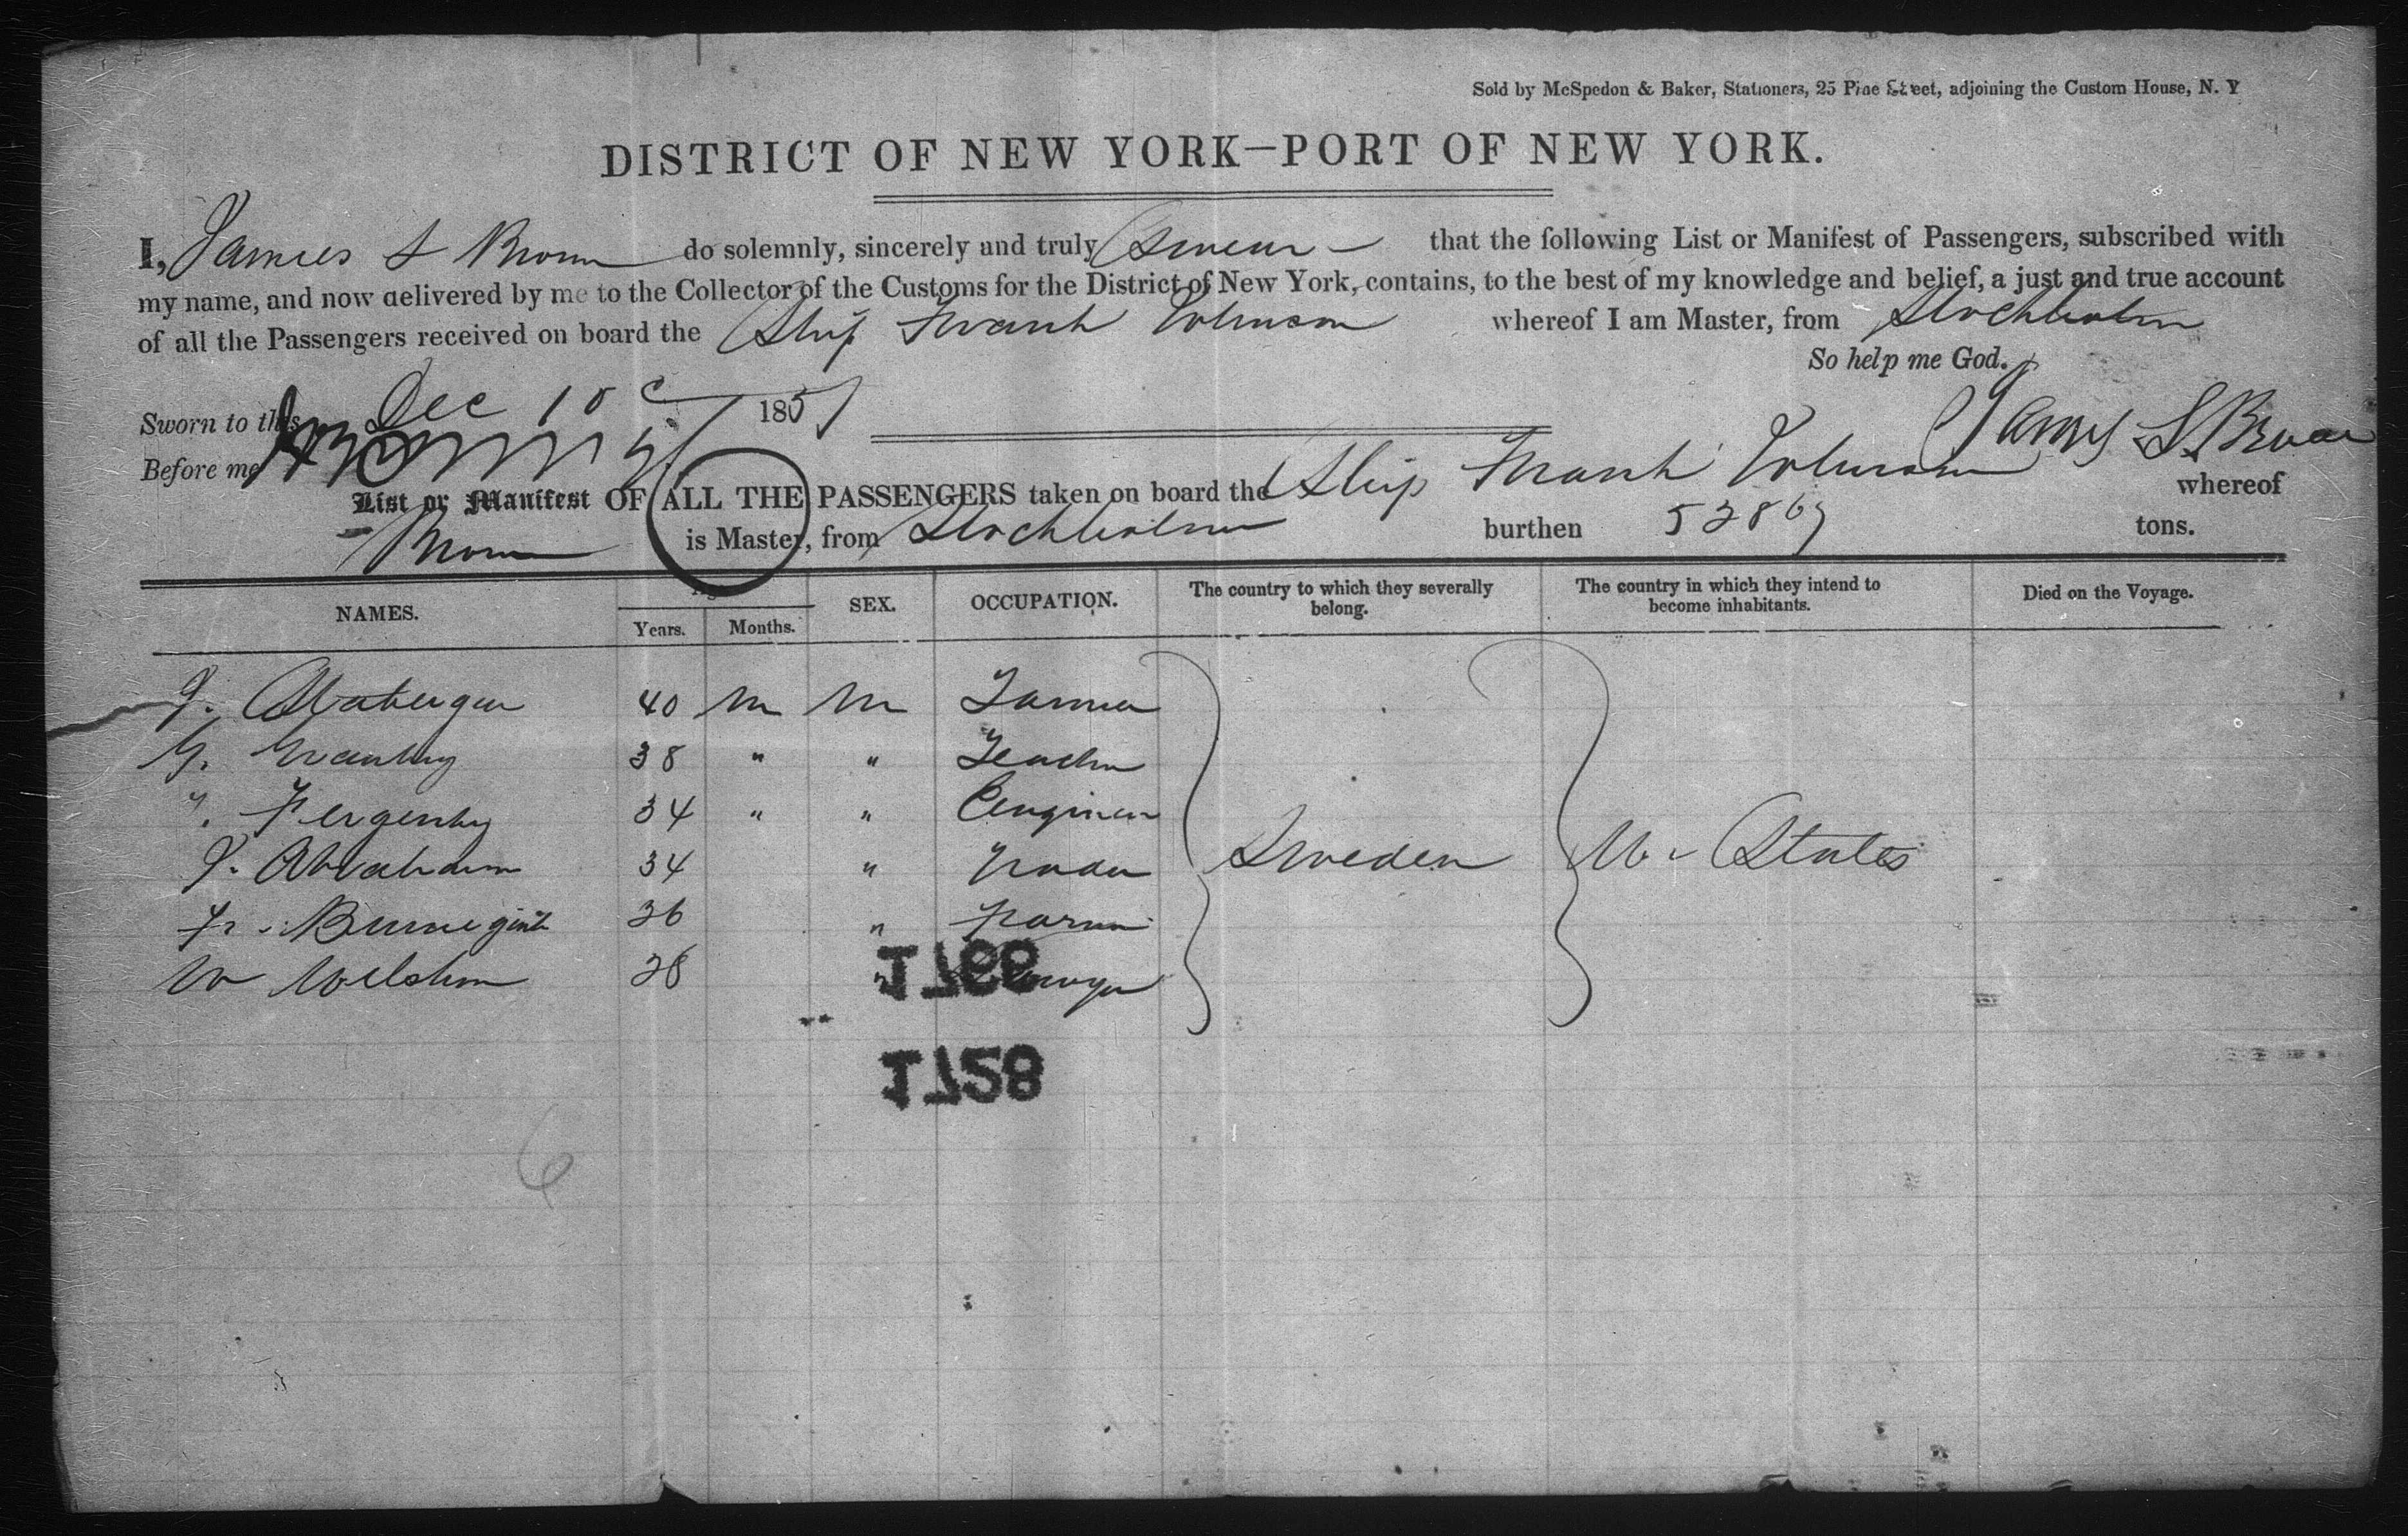 Sold by McSpedon & Baker, Stationers, 25 Pine Street, adjoining the Custom House, N. Y
DISTRICT OF NEW YORK—PORT OF NEW YORK.
I, James S Brown do solemnly, sincerely and truly Swear that the following List or Manifest of Passengers, subscribed with
my name, and now delivered by me to the Collector of the Customs for the District of New York, contains, to the best of my knowledge and belief, a just and true account
of all the Passengers received on board the Ship Frank Johnson whereof I am Master, from Stockholm
So help me God.
Sworn to this Dec 10 1857
James S. Brown
Before me
List or Manifest OF ALL THE PASSENGERS taken on board the Ship Frank Johnson whereof
Brown is Master, from Stockholm burthen 528 69 tons.
NAMES. Age SEX. OCCUPATION. The country to which they severally belong. The country in which they intend to become inhabitants. Died on the Voyage.
Years. Months.
J. 40 m m
G. 38 " " Teacher
". 34 " " Engineer
J. Abraham 34 "
Fr. 36 " Farmer
W 28 "
Sweden U. States
1728
6